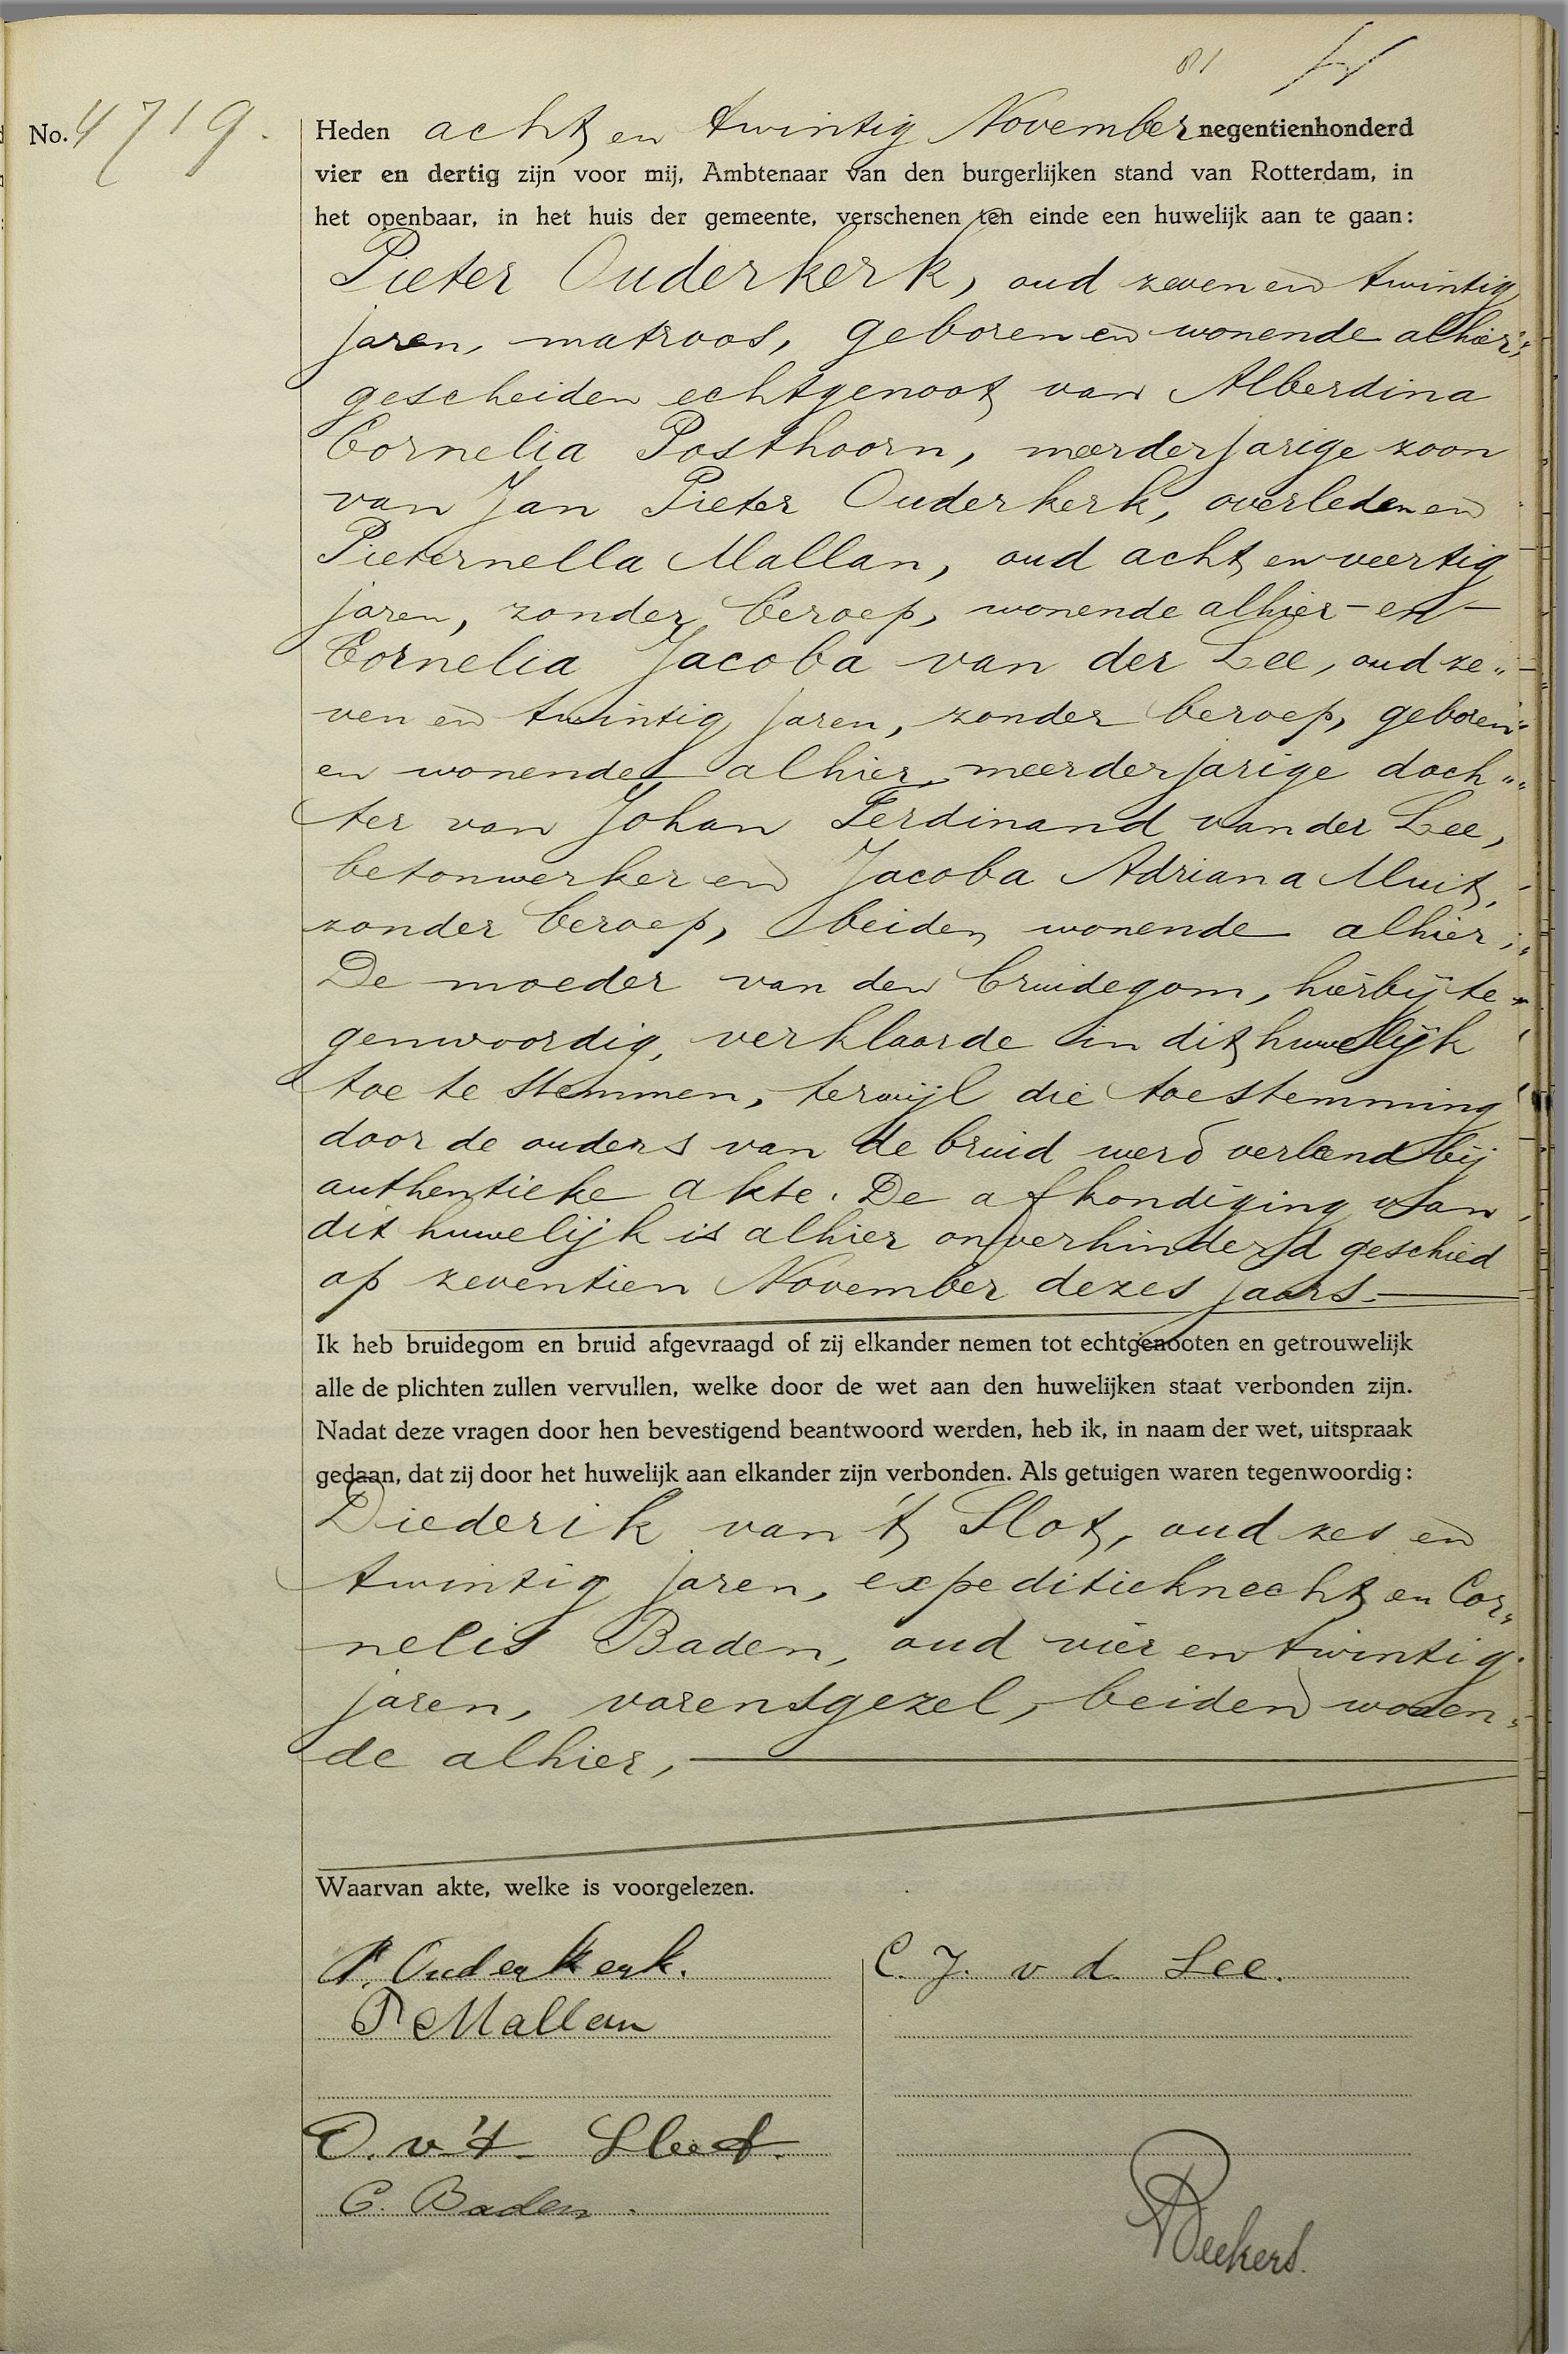 No. 4719.
Heden acht en twintig November negentienhonderd
vier en dertig zijn voor mij, Ambtenaar van den burgerlijken stand van Rotterdam, in
het openbaar, in het huis der gemeente, verschenen ten einde een huwelijk aan te gaan:
Pieter Ouderkerk, oud zeven en twintig
jaren, matroos, geboren en wonende alhier,
gescheiden echtgenoot van Alberdina
Cornelia Posthoorn, meerderjarige zoon
van Jan Pieter Ouderkerk, overleden en
Pieternella Mallan, oud acht en veertig
jaren, zonder beroep, wonende alhier - en -
Cornelia Jacoba van der Lee, oud ze„
ven en twintig jaren, zonder beroep, geboren
en wonende alhier, meerderjarige doch„
ter van Johan Ferdinand van der Lee,
betonwerker en Jacoba Adriana Muit,
zonder beroep, beiden wonende alhier;
De moeder van den bruidegom, hierbij te„
genwoordig, verklaarde in dit huwelijk
toe te stemmen, terwijl die toestemming
door de ouders van de bruid werd verleend bij
authentieke akte. De afkondiging van
dit huwelijk is alhier onverhinderd geschied
op zeventien November dezes jaars.
Ik heb bruidegom en bruid afgevraagd of zij elkander nemen tot echtgenooten en getrouwelijk
alle de plichten zullen vervullen, welke door de wet aan den huwelijken staat verbonden zijn.
Nadat deze vragen door hen bevestigend beantwoord werden, heb ik, in naam der wet, uitspraak
gedaan, dat zij door het huwelijk aan elkander zijn verbonden. Als getuigen waren tegenwoordig:
Diederik van 't Slot, oud zes en
twintig jaren, expeditieknecht en Cor„
nelis Baden, oud vier en twintig
jaren, varensgezel, beiden wonen„
de alhier,
Waarvan akte, welke is voorgelezen.
P. Ouderkerk.
C. J. v d. Lee.
P Mallan
D. v 't Slot.
C. Baden.